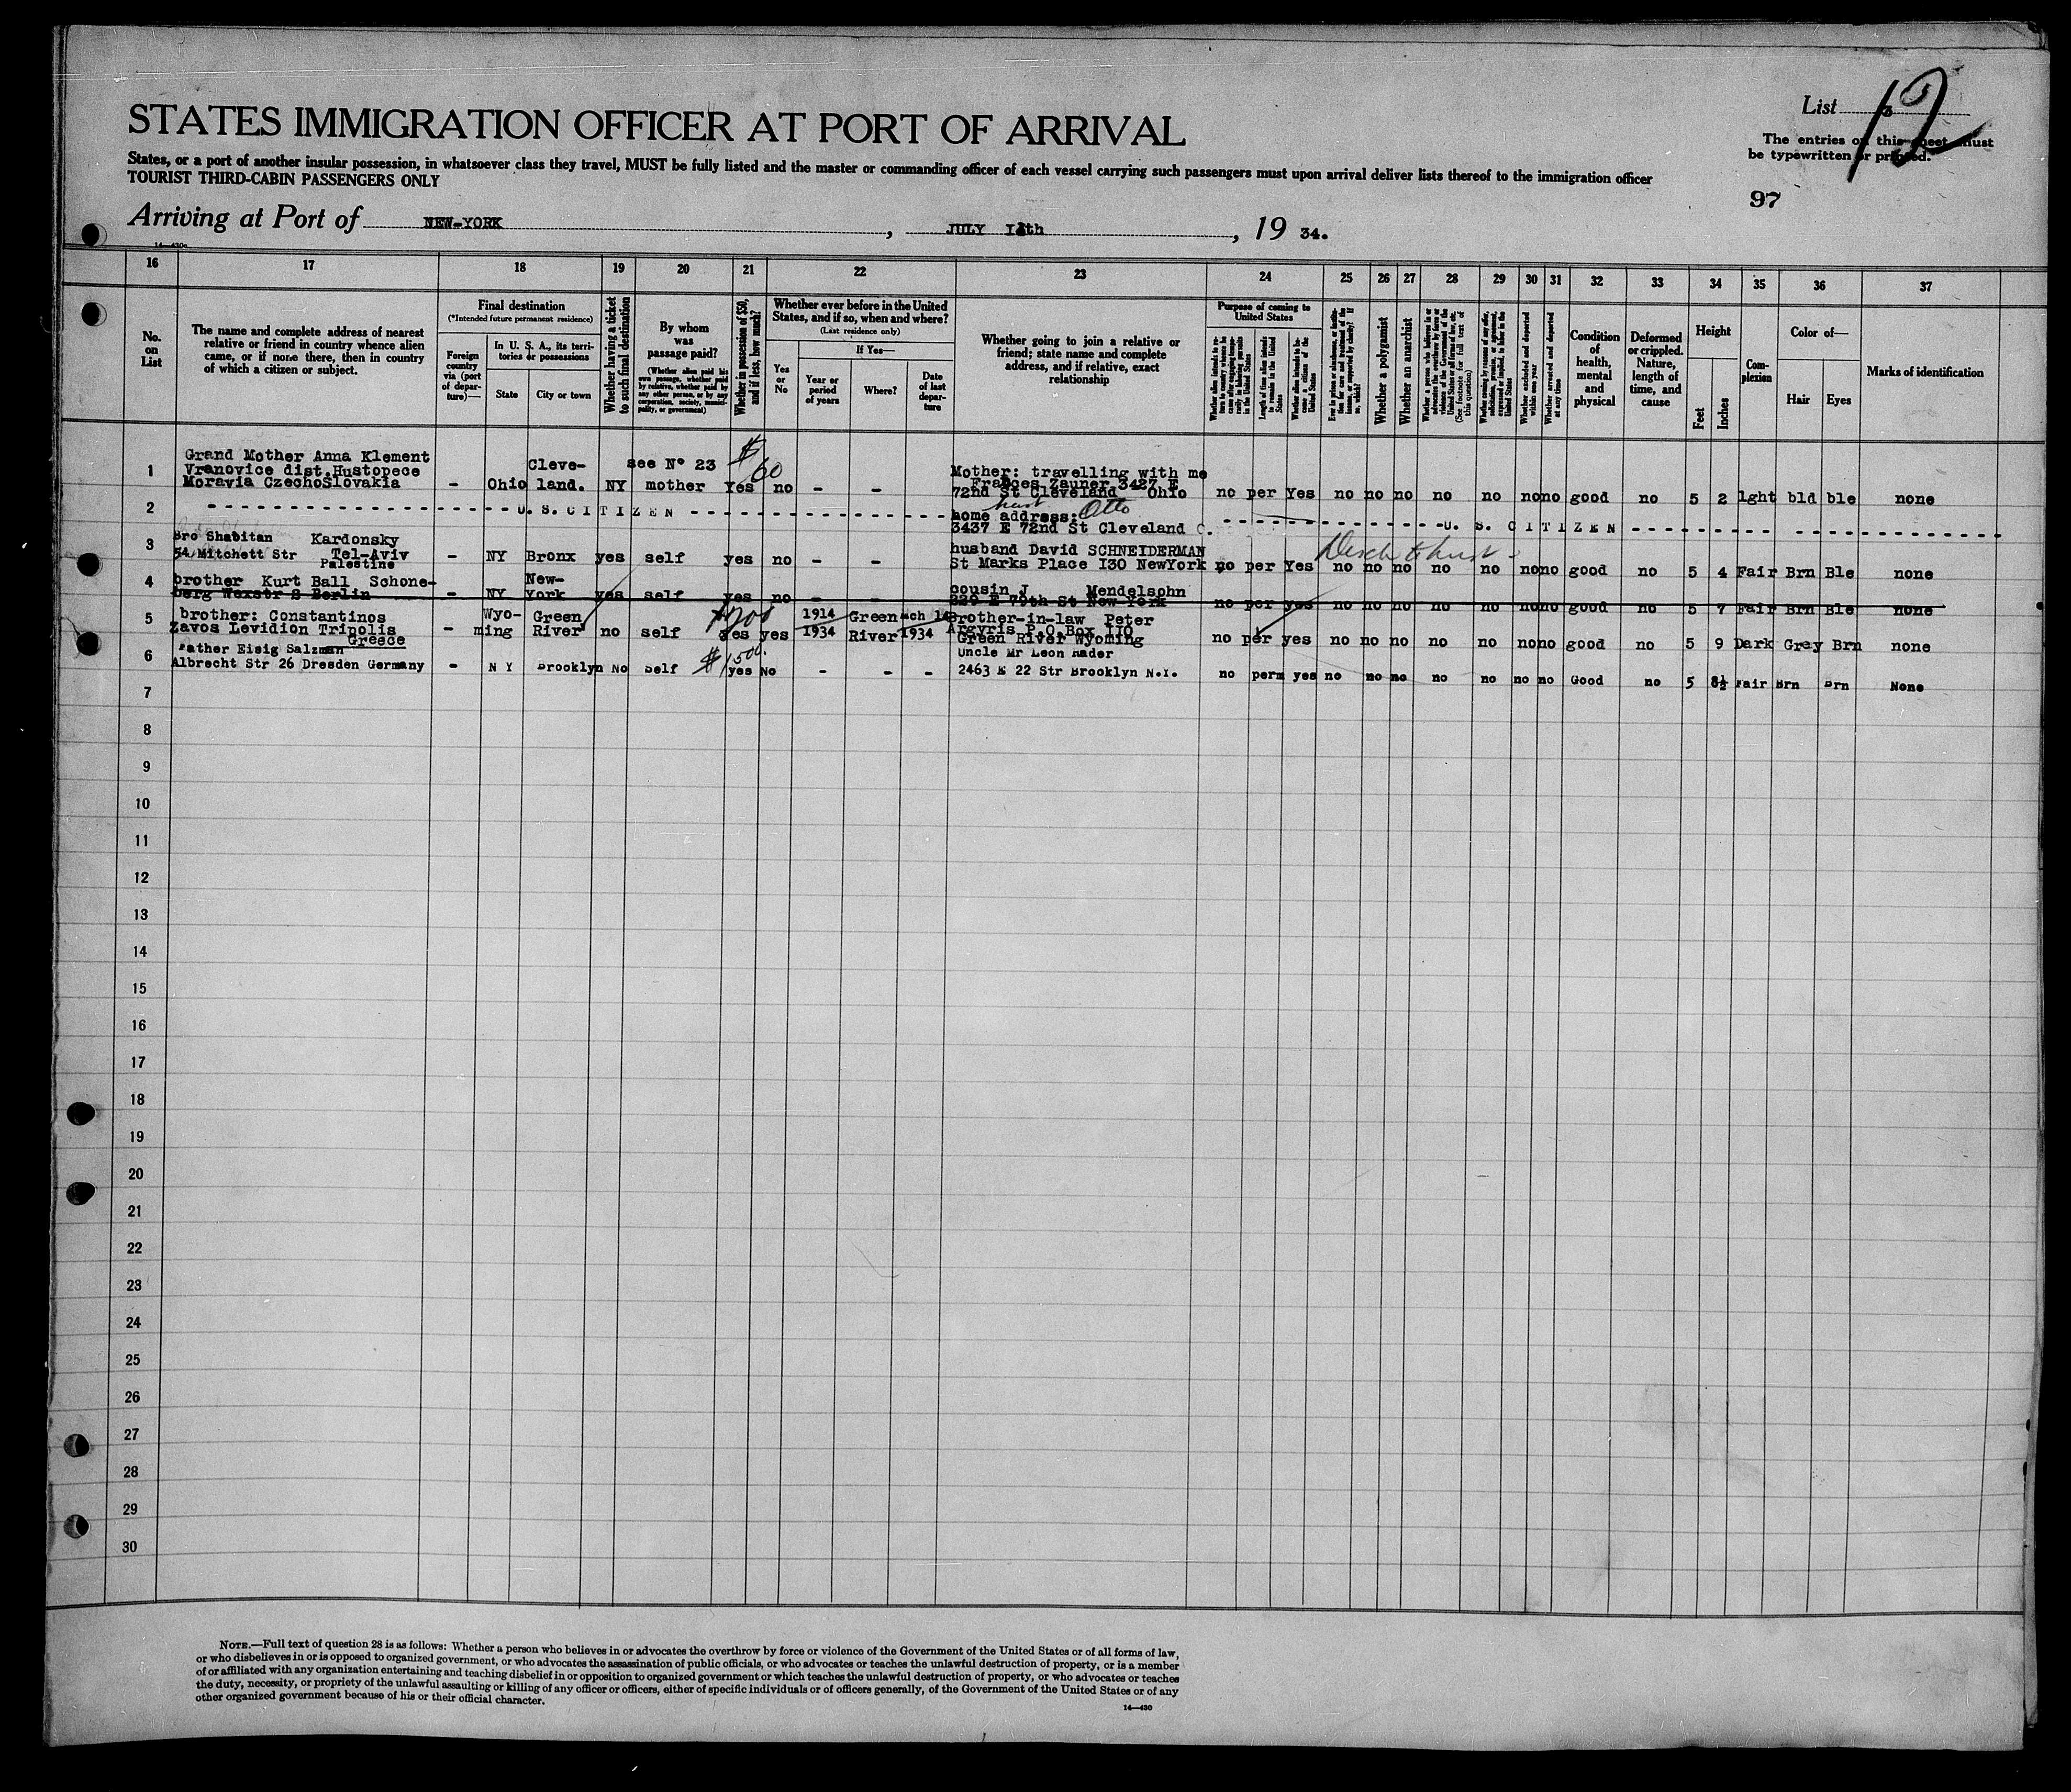 List 3
12
STATES IMMIGRATION OFFICER AT PORT OF ARRIVAL
The entries on this sheet must
be typewritten or printed.
States, or a port of another insular possession, in whatsoever class they travel, MUST be fully listed and the master or commanding officer of each vessel carrying such passengers must upon arrival deliver lists thereof to the immigration officer
TOURIST THIRD-CABIN PASSENGERS ONLY
97
Arriving at Port of NEW-YORK, JULY th, 19 34.
14—430a
16 17 18 19 20 21 22 23 24 25 26 27 28 29 30 31 32 33 34 35 36 37
No. on List
The name and complete address of nearest
relative or friend in country whence alien
came, or if none there, then in country
of which a citizen or subject.
Final destination
(*Intended future permanent residence)
Foreign country via (port of departure)—
In U. S. A., its territories or possessions
State
City or town
Whether having a ticket to such final destination
By whom was passage paid?
(Whether alien paid his own passage, whether paid by relative, whether paid by any other person, or by any corporation, society, municipality, or government)
Whether in possession of $50, and if less, how much?
Whether ever before in the United States, and if so, when and where?
(Last residence only)
Yes or No
If Yes—
Year or period of years
Where?
Date of last departure
Whether going to join a relative or
friend; state name and complete
address, and if relative, exact
relationship
Purpose of coming to United States
Whether alien intends to return to country whence he came after engaging temporarily in laboring pursuits in the United States
Length of time alien intends to remain in the United States
Whether alien intends to become a citizen of the United States
Ever in prison or almshouse, or institution for care and treatment of the insane, or supported by charity? If so, which?
Whether a polygamist
Whether an anarchist
Whether a person who believes in or advocates the overthrow by force or violence of the Government of the United States or all forms of law, etc. (See footnote for full text of this question)
Whether coming by reason of any offer, solicitation, promise, or agreement, expressed or implied, to labor in the United States
Whether excluded and deported within one year
Whether arrested and deported at any time
Condition of health, mental and physical
Deformed or crippled. Nature, length of time, and cause
Height
Feet
Inches
Complexion
Color of—
Hair
Eyes
Marks of identification
Grand Mother Anna Klement
1 Vranovice dist.Hustopece Cleve- see N° 23 $60 Mother: travelling with me
Moravia CzechoSlovakia - Ohio land. NY mother Yes no - - Frances Zauner 3427 E
72nd St Cleveland Ohio no per Yes no no no no no no no good no 5 2 lght bld ble none
2 U. S. CITIZEN home address: husb Otto
3437 E 72nd St Cleveland O. U. S. CITIZEN
3 Bro Shabitan Kardonsky
54 Mitchett Str Tel-Aviv - NY Bronx yes self yes no - husband David SCHNEIDERMAN
Palestine St Marks Place I30 NewYork no per Yes no no no no no no no good no 5 4 Fair Brn Ble none
4 brother Kurt Ball Schone- New- cousin J. Mendelsohn
berg Wexstr 8 Berlin - NY York yes self yes no - - 229 E 79th St New York no per yes no no no no no no no good no 5 7 Fair Brn Ble none
5 brother: Constantinos Wyo- Green 1914 Green mch Brother-in-law Peter
Zavos Levidion Tripolis - ming River no self yes yes 1934 River 1934 Argyris P.O.Box 110
Greece Green River Wyoming no per yes no no no no no no no good no 5 9 Dark Grey Brn none
6 Father Eisig Salzman $1500. Uncle Mr Leon Rader
Albrecht Str 26 Dresden Germany - N Y Brooklyn No Self yes No - - - 2463 E 22 Str Brooklyn N.Y. no perm yes no no no no no no no Good no 5 8½ Fair Brn Brn None
7
8
9
10
11
12
13
14
15
16
17
18
19
20
21
22
23
24
25
26
27
28
29
30
NOTE.—Full text of question 28 is as follows: Whether a person who believes in or advocates the overthrow by force or violence of the Government of the United States or of all forms of law,
or who disbelieves in or is opposed to organized government, or who advocates the assassination of public officials, or who advocates or teaches the unlawful destruction of property, or is a member
of or affiliated with any organization entertaining and teaching disbelief in or opposition to organized government or which teaches the unlawful destruction of property, or who advocates or teaches
the duty, necessity, or propriety of the unlawful assaulting or killing of any officer or officers, either of specific individuals or of officers generally, of the Government of the United States or of any
other organized government because of his or their official character.
14—430